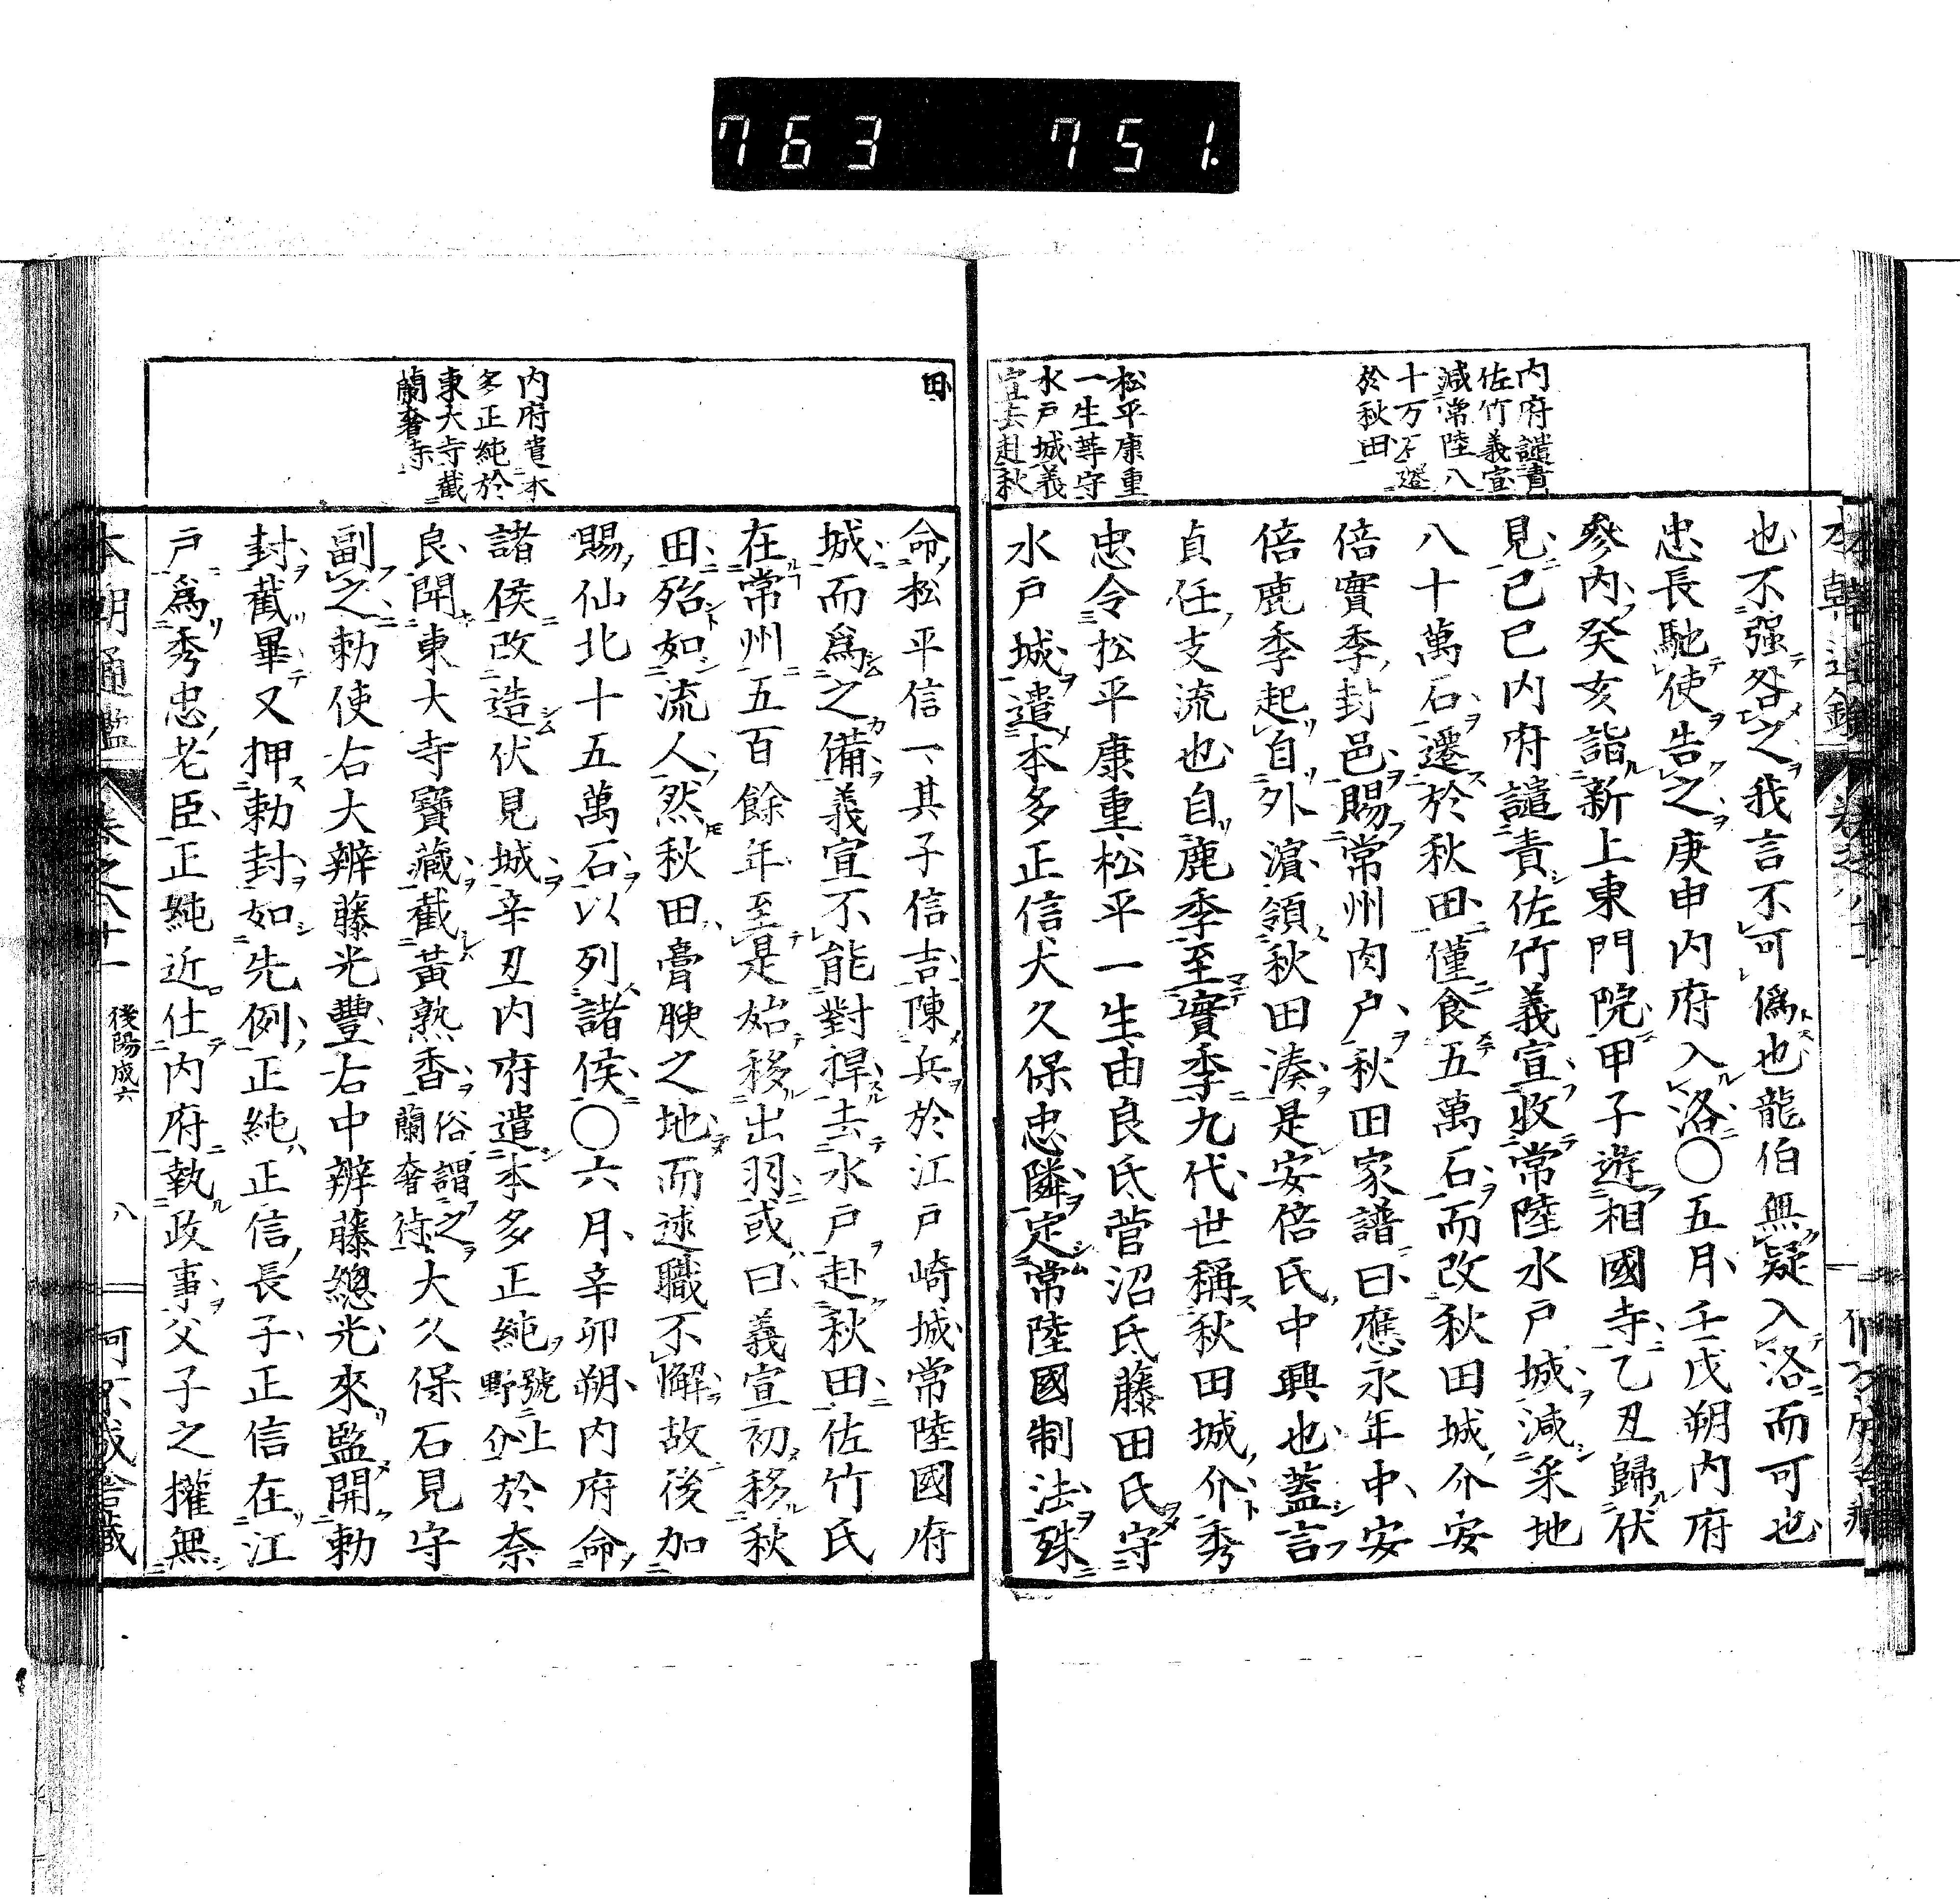 763 751.
内府譴責
佐竹義宣
減常陸八
十万石遷
於秋田
松平康重
一生等守
水戸城義
宣去赴秋
也不强咎之我言不可僞也龍伯無疑入洛而可也
忠長馳使告之庚申内府入洛〇五月壬戌朔内府
參内癸亥詣新上東門院甲子遊相國寺乙丑歸伏
見己巳内府譴責佐竹義宣收常陸水戸城減采地
八十萬石遷於秋田僅食五萬石而改秋田城介安
倍實季封邑賜常州肉戸秋田家譜曰應永年中安
倍鹿季起自外濵領秋田湊是安倍氏中興也蓋言
貞任支流也自鹿季至實季九代世稱秋田城介秀
忠令松平康重松平一生由良氏菅沼氏藤田氏守
水戸城遣本多正信大久保忠隣定常陸國制法殊
田
内府遣本
多正純於
東大寺截
蘭奢待
命松平信一其子信吉陳兵於江戸崎城常陸國府
城而爲之備義宣不能對捍去水戸赴秋田佐竹氏
在常州五百餘年至是始移出羽或曰義宣初移秋
田殆如流人然秋田膏腴之地而述職不懈故後加
賜仙北十五萬石以列諸侯〇六月辛卯朔内府命
諸侯改造伏見城辛丑内府遣本多正純號上野介於奈
良開東大寺寶藏截黃熟香俗謂之蘭奢待大久保石見守
副之勅使右大辨藤光豐右中辨藤總光來監開勅
封截畢又押勅封如先例正純正信長子正信在江
戸爲秀忠老臣正純近仕内府執政事父子之權無
本朝通鑑 卷之八十一 後陽成六 八